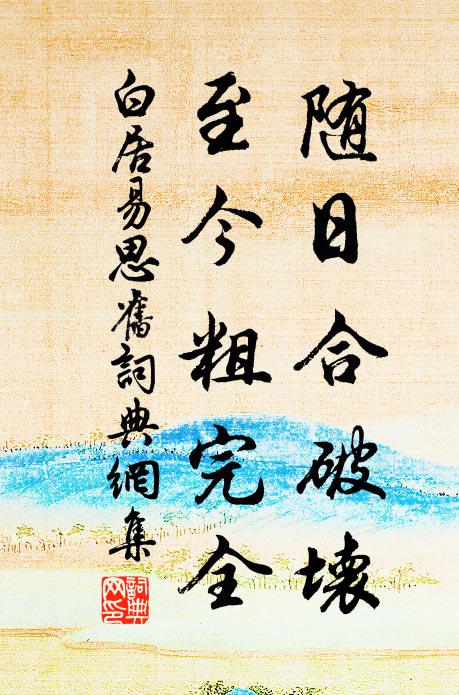 随日合破壊
至今粗完全
白居易思舊詞典網集
詞典